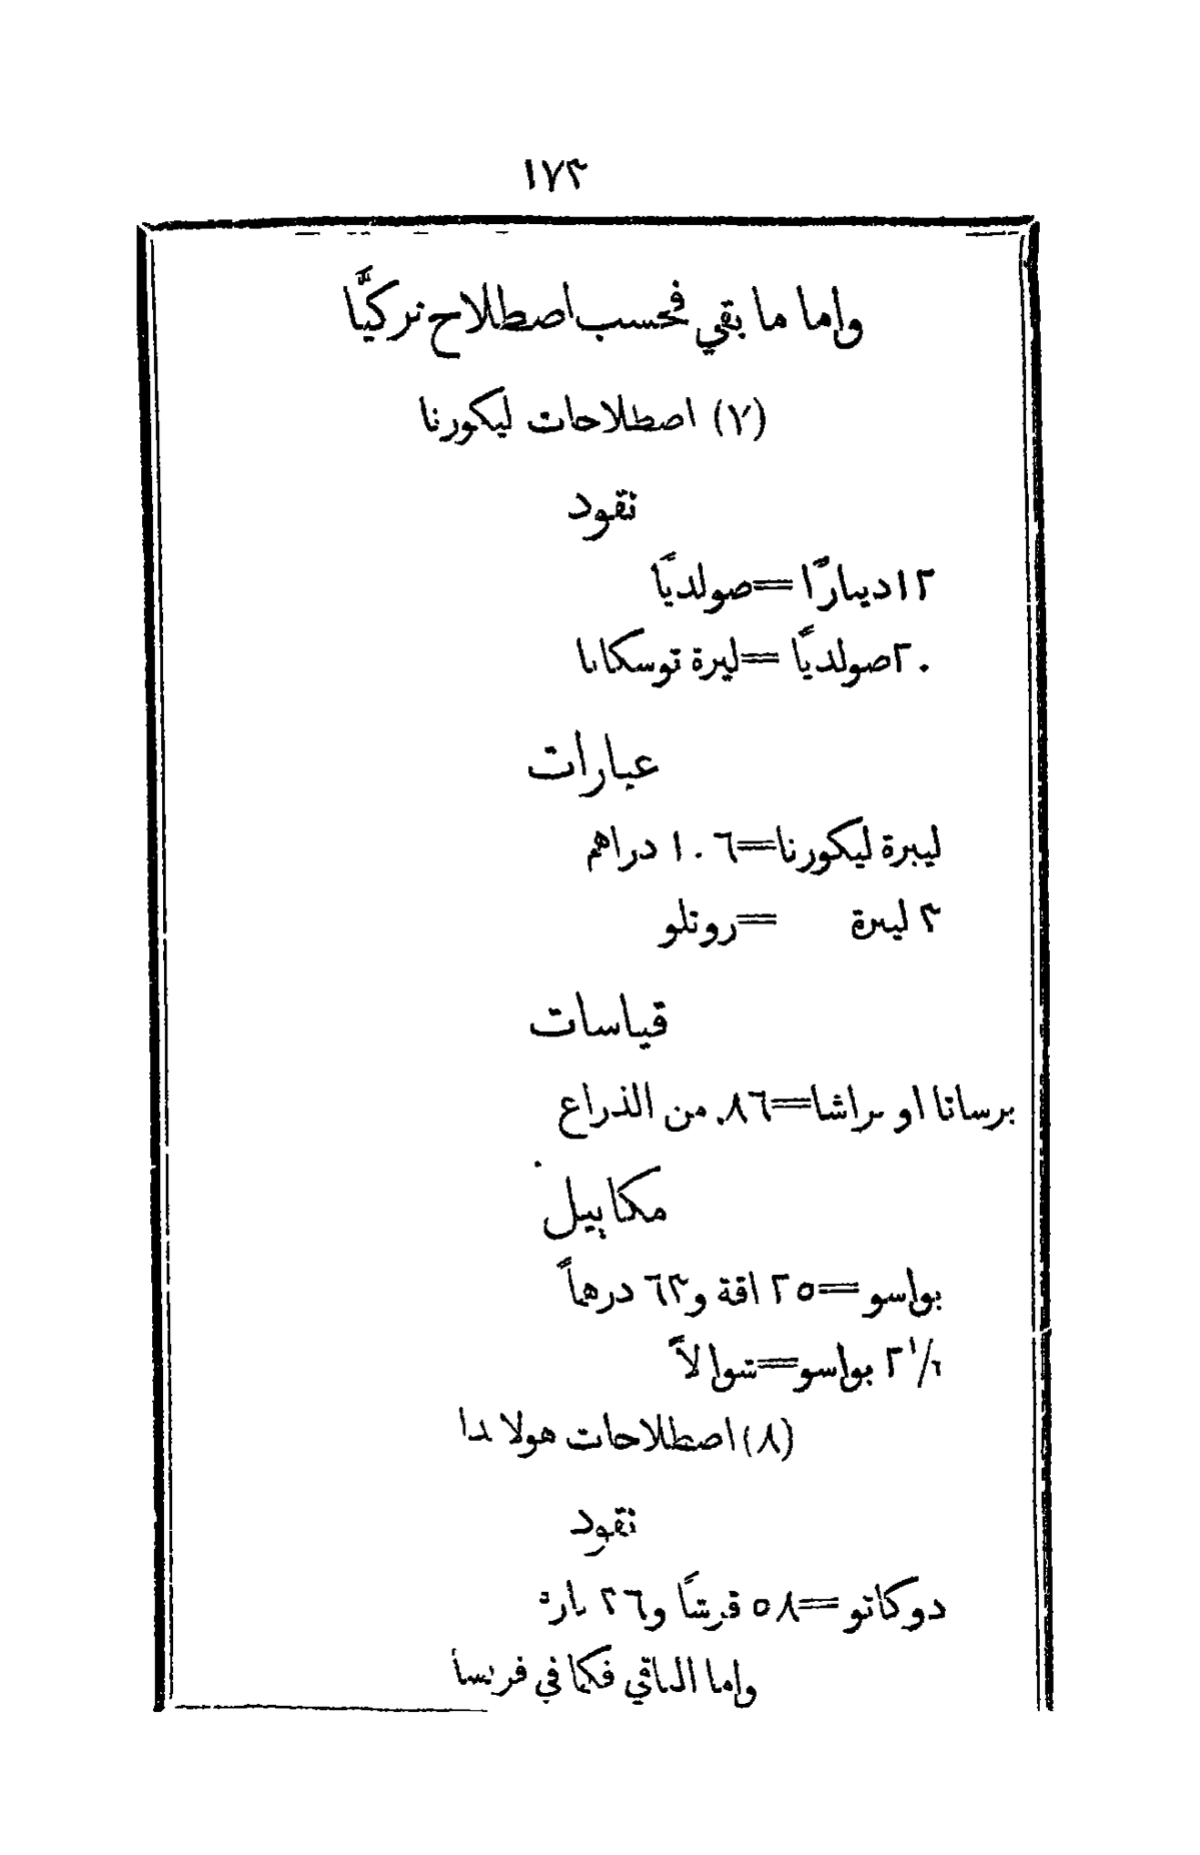 ١٧٣
واما ما بقي فحسب اصطلاح تركيَّا
(٧) اصطلاحات ليكورنا
نقود
١٢ دينارًا = صولديًا
٢٠ صولديًا = ليرة توسكانا
عيارات
ليبرة ليكورنا = ١٠٦ دراهم
٣ ليبرة = روتلو
قياسات
برساتا او براشا = ٨٦. من الذراع
مكاييل
بواسو = ٢٥ اقة و٦٣ درهماً
٢ ١/٦ بواسو = شوالاً
(٨) اصطلاحات هولاندا
نقود
دوكاتو = ٥٨ قرشًا و٢٦ بارة
واما الباقي فكما في فرنسا